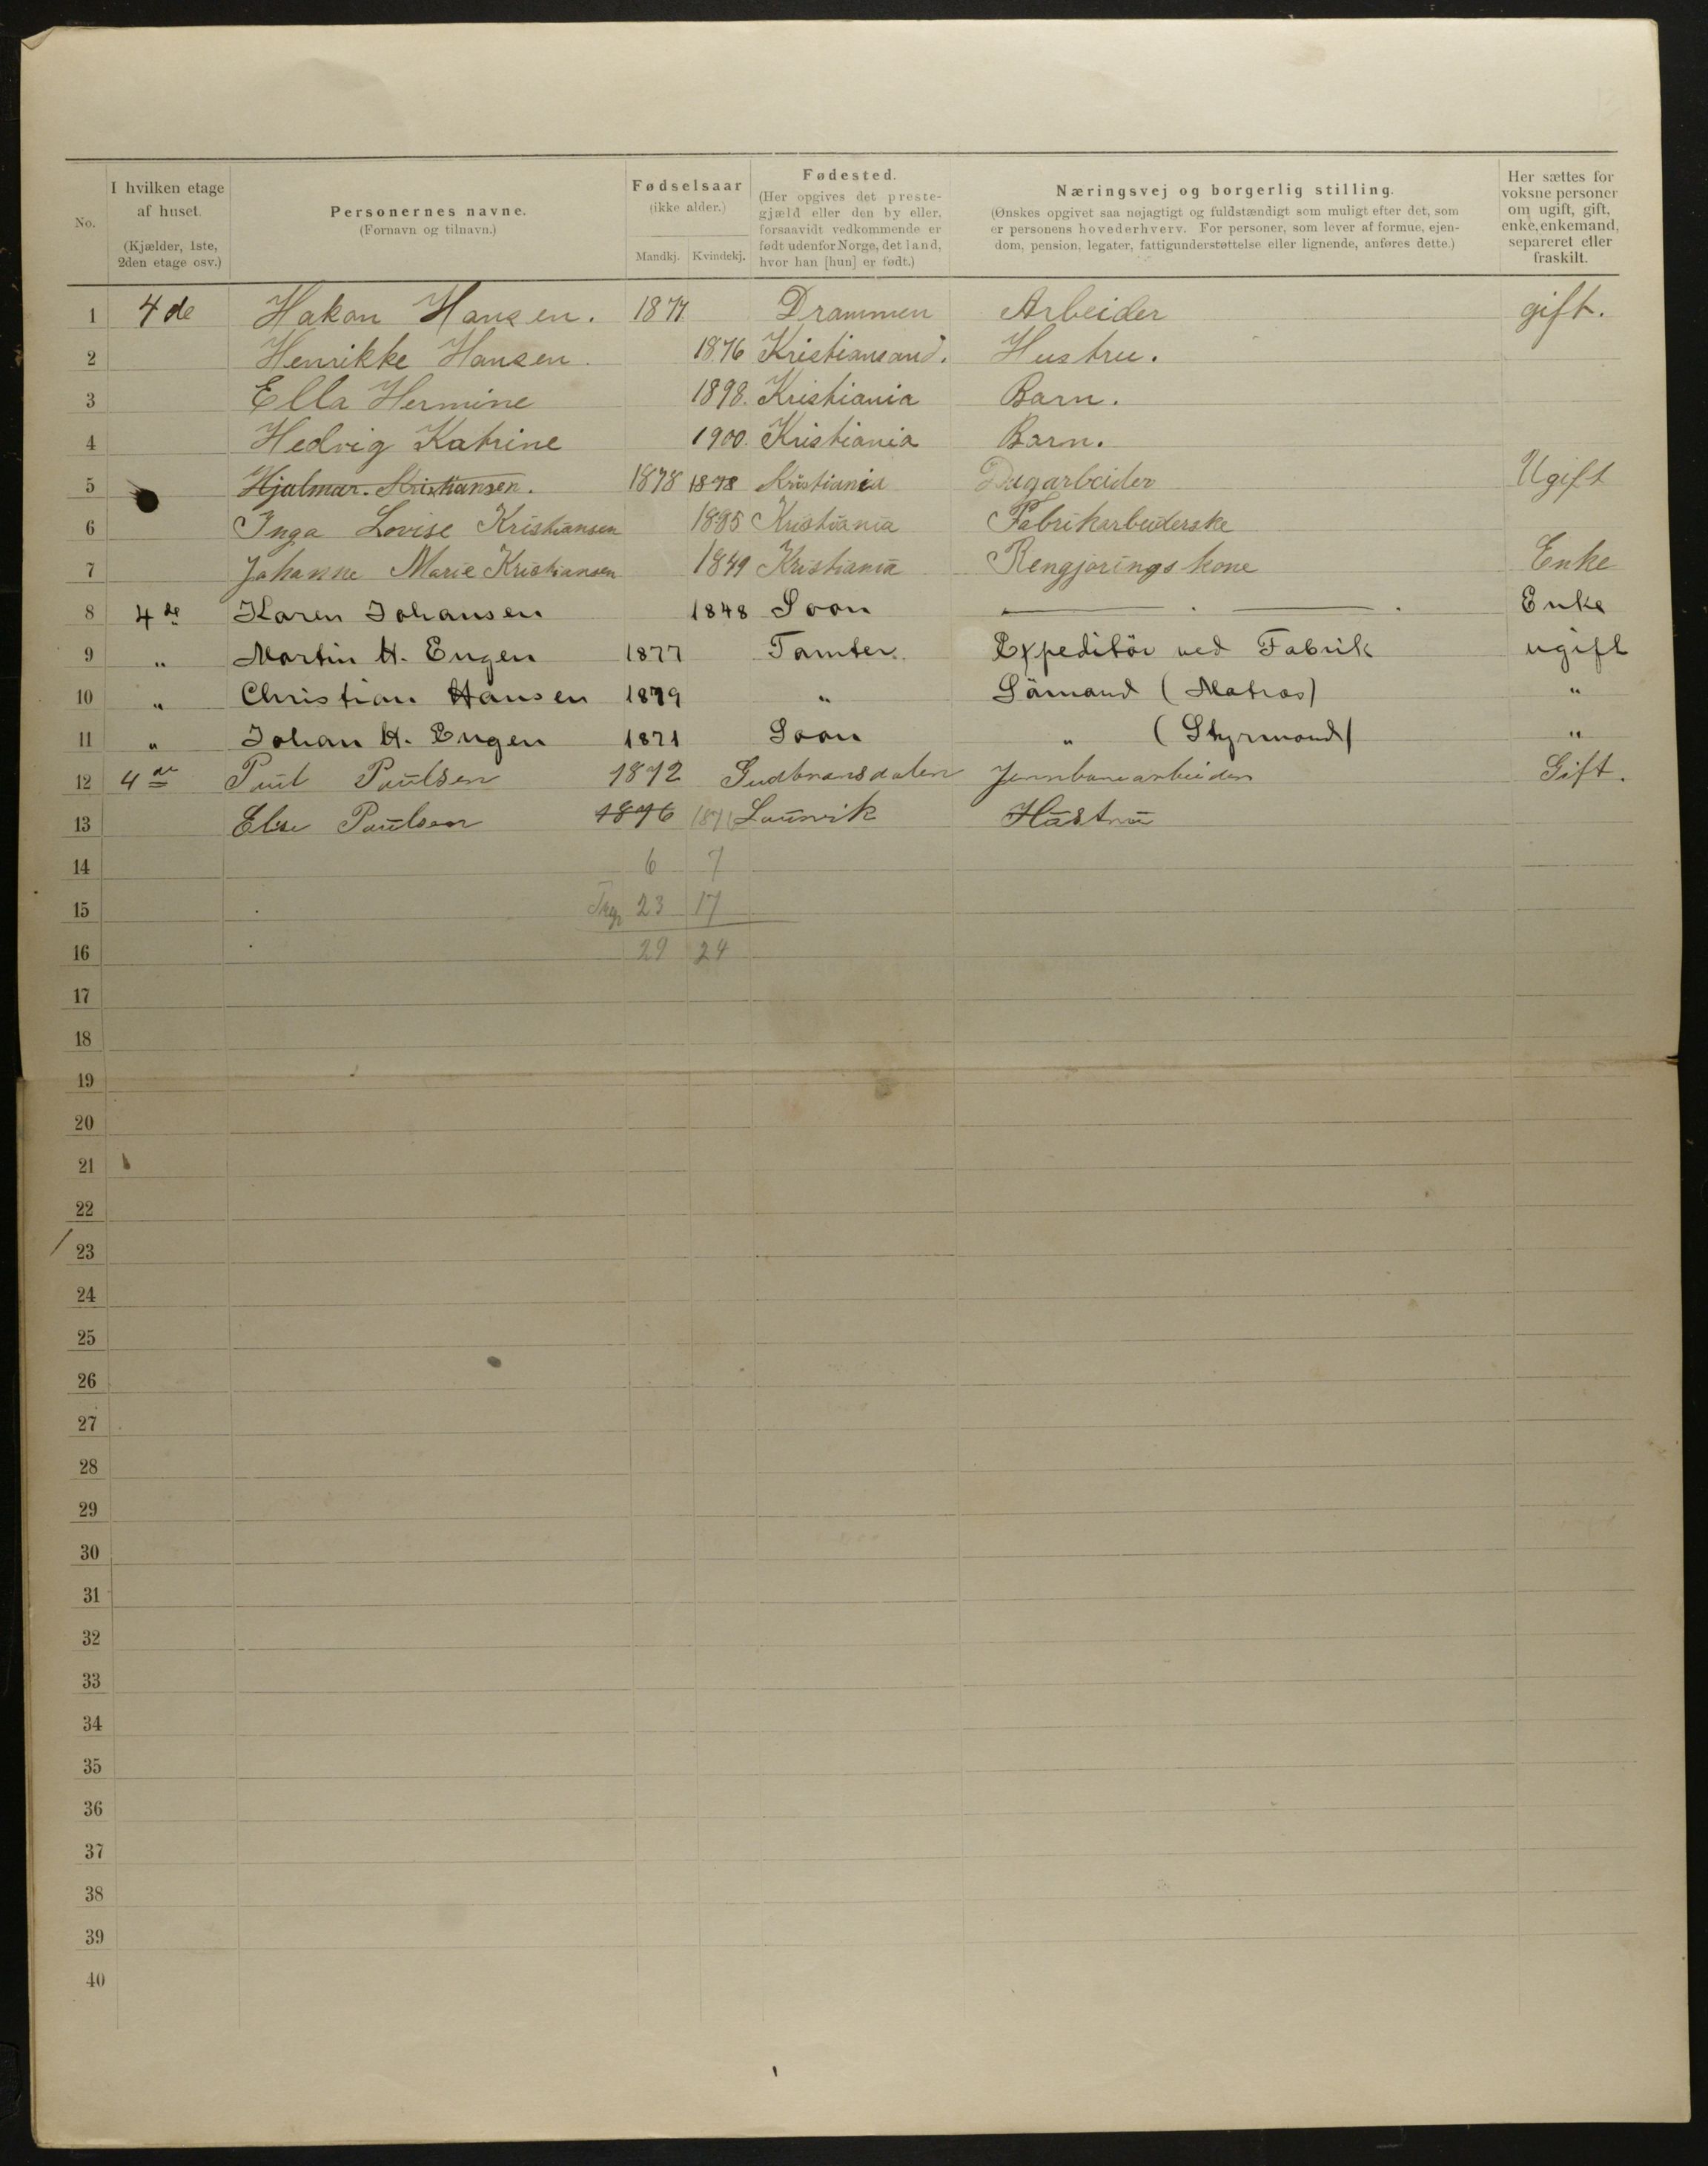 No.
I hvilken etage af huset. (Kjælder, 1ste, 2den etage osv.)
Personernes navne. (Fornavn og tilnavn.)
Fødselsaar (ikke alder.) Mandkj. Kvindekj.
Fødested. (Her opgives det prestegjæld eller den by eller, forsaavidt vedkommende er født udenfor Norge, det land, hvor han [hun] er født.)
Næringsvej og borgerlig stilling. (Ønskes opgivet saa nøjagtigt og fuldstændigt som muligt efter det, som er personens hovederhverv. For personer, som lever af formue, ejendom, pension, legater, fattigunderstøttelse eller lignende, anføres dette.)
Her sættes for voksne personer om ugift, gift, enke, enkemand, separeret eller fraskilt.
1 4de Hakon Hansen. Drammen Arbeider gift.
2 Henrikke Hansen. 1876 Kristiansand. Hustru.
3 Ella Hermine 1898. Kristiania Barn.
4 Hedvig Katrine 1900. Kristiania Barn.
5 Hjalmar. Kristiansen. 1878 1878 Kristiania Dagarbeider Ugift
6 Inga Lovise Kristiansen Kristiania Fabrikarbeiderske
7 Johanne Marie Kristiansen 1849 Kristiania Rengjøringskone Enke
8 4de Karen Johansen 1848 Soon Enke
9 " Martin H. Engen 1877 Tomter. Expeditör ved Fabrik ugift
10 " Christian Hansen 1879 " Sömand (Matros) "
11 " Johan H. Engen 1871 Soon " (Styrmand) "
12 4de Paul Paulsen 1872 Gudbransdalen Jernbanearbeider Gift.
13 Elise Paulsen 1876 1876 Laurvik Hustru
14 6 7
15 23 17
16 29 24
17
18
19
20
21
22
23
24
25
26
27
28
29
30
31
32
33
34
35
36
37
38
39
40